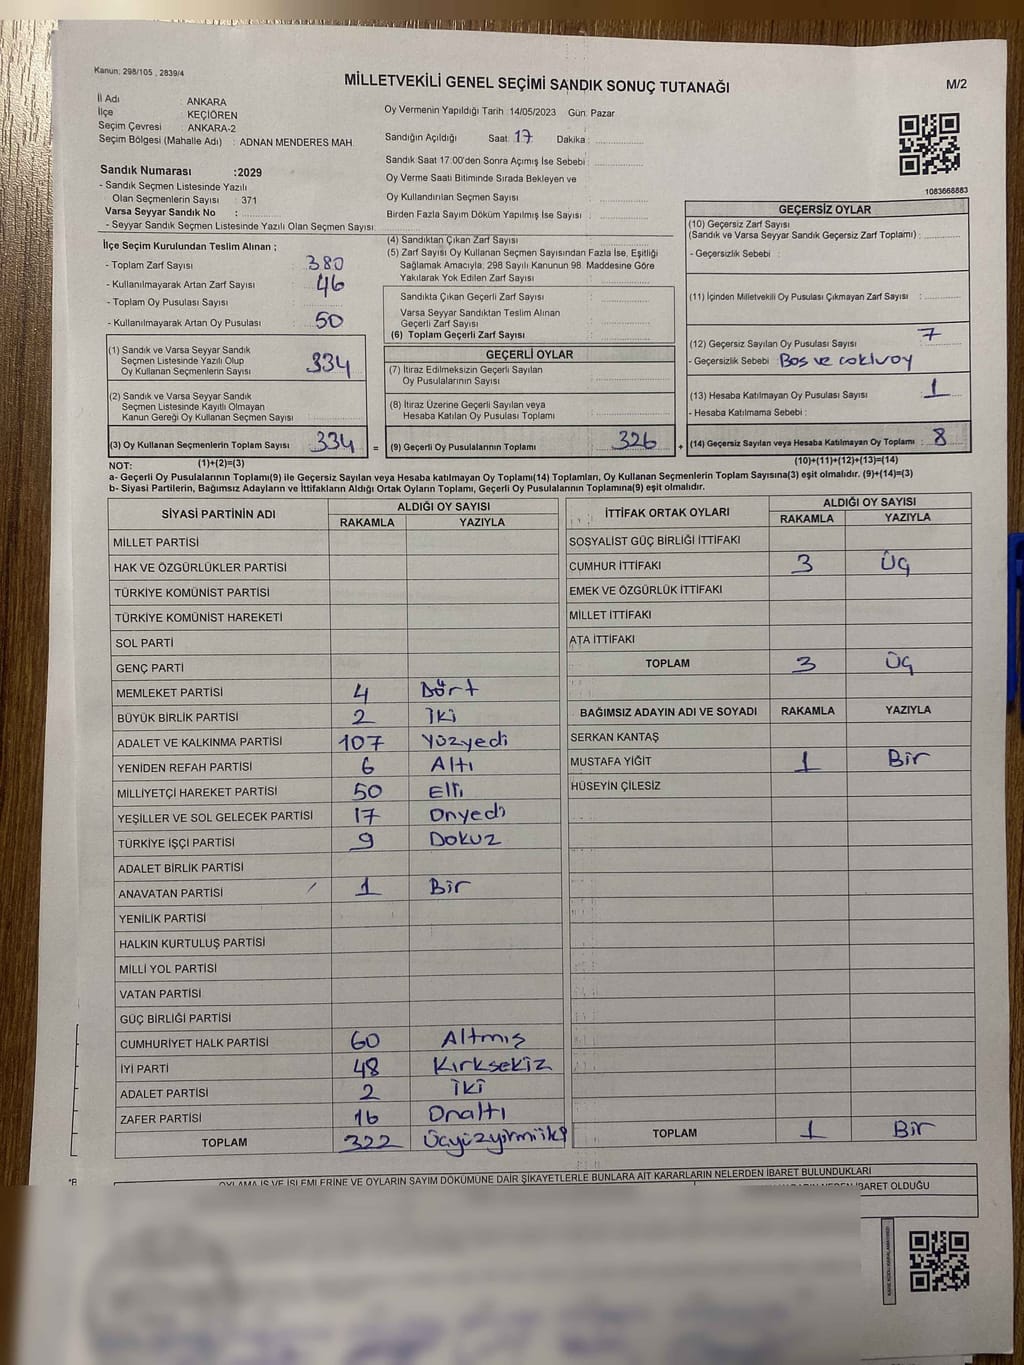 Kanun: 298/105 , 2839/4
MİLLETVEKİLİ GENEL SEÇİMİ SANDIK SONUÇ TUTANAĞI
M/2
İl Adı : ANKARA
İlçe : KEÇİÖREN
Seçim Çevresi : ANKARA-2
Seçim Bölgesi (Mahalle Adı) : ADNAN MENDERES MAH.
Oy Vermenin Yapıldığı Tarih : 14/05/2023 Gün: Pazar
Sandığın Açıldığı Saat: 17 Dakika :
Sandık Saat 17:00'den Sonra Açımış İse Sebebi :
Oy Verme Saati Bitiminde Sırada Bekleyen ve
Oy Kullandırılan Seçmen Sayısı :
Birden Fazla Sayım Döküm Yapılmış İse Sayısı :
1083668883
Sandık Numarası :2029
- Sandık Seçmen Listesinde Yazılı
Olan Seçmenlerin Sayısı : 371
Varsa Seyyar Sandık No :
- Seyyar Sandık Seçmen Listesinde Yazılı Olan Seçmen Sayısı:
İlçe Seçim Kurulundan Teslim Alınan ;
- Toplam Zarf Sayısı : 380
- Kullanılmayarak Artan Zarf Sayısı : 46
- Toplam Oy Pusulası Sayısı :
- Kullanılmayarak Artan Oy Pusulası : 50
(1) Sandık ve Varsa Seyyar Sandık
Seçmen Listesinde Yazılı Olup
Oy Kullanan Seçmenlerin Sayısı : 334
(2) Sandık ve Varsa Seyyar Sandık
Seçmen Listesinde Kayıtlı Olmayan
Kanun Gereği Oy Kullanan Seçmen Sayısı :
(3) Oy Kullanan Seçmenlerin Toplam Sayısı : 334 =
(1)+(2)=(3)
(4) Sandıktan Çıkan Zarf Sayısı :
(5) Zarf Sayısı Oy Kullanan Seçmen Sayısından Fazla İse, Eşitliği
Sağlamak Amacıyla, 298 Sayılı Kanunun 98. Maddesine Göre
Yakılarak Yok Edilen Zarf Sayısı :
Sandıkta Çıkan Geçerli Zarf Sayısı :
Varsa Seyyar Sandıktan Teslim Alınan
Geçerli Zarf Sayısı :
(6) Toplam Geçerli Zarf Sayısı :
GEÇERLİ OYLAR
(7) İtiraz Edilmeksizin Geçerli Sayılan
Oy Pusulalarının Sayısı :
(8) İtiraz Üzerine Geçerli Sayılan veya
Hesaba Katılan Oy Pusulası Toplamı :
(9) Geçerli Oy Pusulalarının Toplamı : 326 +
GEÇERSİZ OYLAR
(10) Geçersiz Zarf Sayısı
(Sandık ve Varsa Seyyar Sandık Geçersiz Zarf Toplamı) :
- Geçersizlik Sebebi :
(11) İçinden Milletvekili Oy Pusulası Çıkmayan Zarf Sayısı :
(12) Geçersiz Sayılan Oy Pusulası Sayısı : 7
- Geçersizlik Sebebi : Boş ve coklu oy
(13) Hesaba Katılmayan Oy Pusulası Sayısı : 1
- Hesaba Katılmama Sebebi :
(14) Geçersiz Sayılan veya Hesaba Katılmayan Oy Toplamı : 8
(10)+(11)+(12)+(13)=(14)
NOT:
a- Geçerli Oy Pusulalarının Toplamı(9) ile Geçersiz Sayılan veya Hesaba katılmayan Oy Toplamı(14) Toplamları, Oy Kullanan Seçmenlerin Toplam Sayısına(3) eşit olmalıdır. (9)+(14)=(3)
b- Siyasi Partilerin, Bağımsız Adayların ve İttifakların Aldığı Ortak Oyların Toplamı, Geçerli Oy Pusulalarının Toplamına(9) eşit olmalıdır.
SİYASİ PARTİNİN ADI
ALDIĞI OY SAYISI
RAKAMLA YAZIYLA
MİLLET PARTİSİ
HAK VE ÖZGÜRLÜKLER PARTİSİ
TÜRKİYE KOMÜNİST PARTİSİ
TÜRKİYE KOMÜNİST HAREKETİ
SOL PARTİ
GENÇ PARTİ
MEMLEKET PARTİSİ 4 Dört
BÜYÜK BİRLİK PARTİSİ 2 İki
ADALET VE KALKINMA PARTİSİ 107 Yüzyedi
YENİDEN REFAH PARTİSİ 6 Altı
MİLLİYETÇİ HAREKET PARTİSİ 50 Elli
YEŞİLLER VE SOL GELECEK PARTİSİ 17 Onyedi
TÜRKİYE İŞÇİ PARTİSİ 9 Dokuz
ADALET BİRLİK PARTİSİ
ANAVATAN PARTİSİ 1 Bir
YENİLİK PARTİSİ
HALKIN KURTULUŞ PARTİSİ
MİLLİ YOL PARTİSİ
VATAN PARTİSİ
GÜÇ BİRLİĞİ PARTİSİ
CUMHURİYET HALK PARTİSİ 60 Altmış
İYİ PARTİ 48 Kırksekiz
ADALET PARTİSİ 2 İki
ZAFER PARTİSİ 16 Onaltı
TOPLAM 322 Üçyüzyirmiiki
İTTİFAK ORTAK OYLARI
ALDIĞI OY SAYISI
RAKAMLA YAZIYLA
SOSYALİST GÜÇ BİRLİĞİ İTTİFAKI
CUMHUR İTTİFAKI 3 Üç
EMEK VE ÖZGÜRLÜK İTTİFAKI
MİLLET İTTİFAKI
ATA İTTİFAKI
TOPLAM 3 Üç
BAĞIMSIZ ADAYIN ADI VE SOYADI RAKAMLA YAZIYLA
SERKAN KANTAŞ
MUSTAFA YİĞİT 1 Bir
HÜSEYİN ÇİLESİZ
TOPLAM 1 Bir
OYLAMA İŞ VE İŞLEMLERİNE VE OYLARIN SAYIM DÖKÜMÜNE DAİR ŞİKAYETLERLE BUNLARA AİT KARARLARIN NELERDEN İBARET BULUNDUKLARI
İBARET OLDUĞU